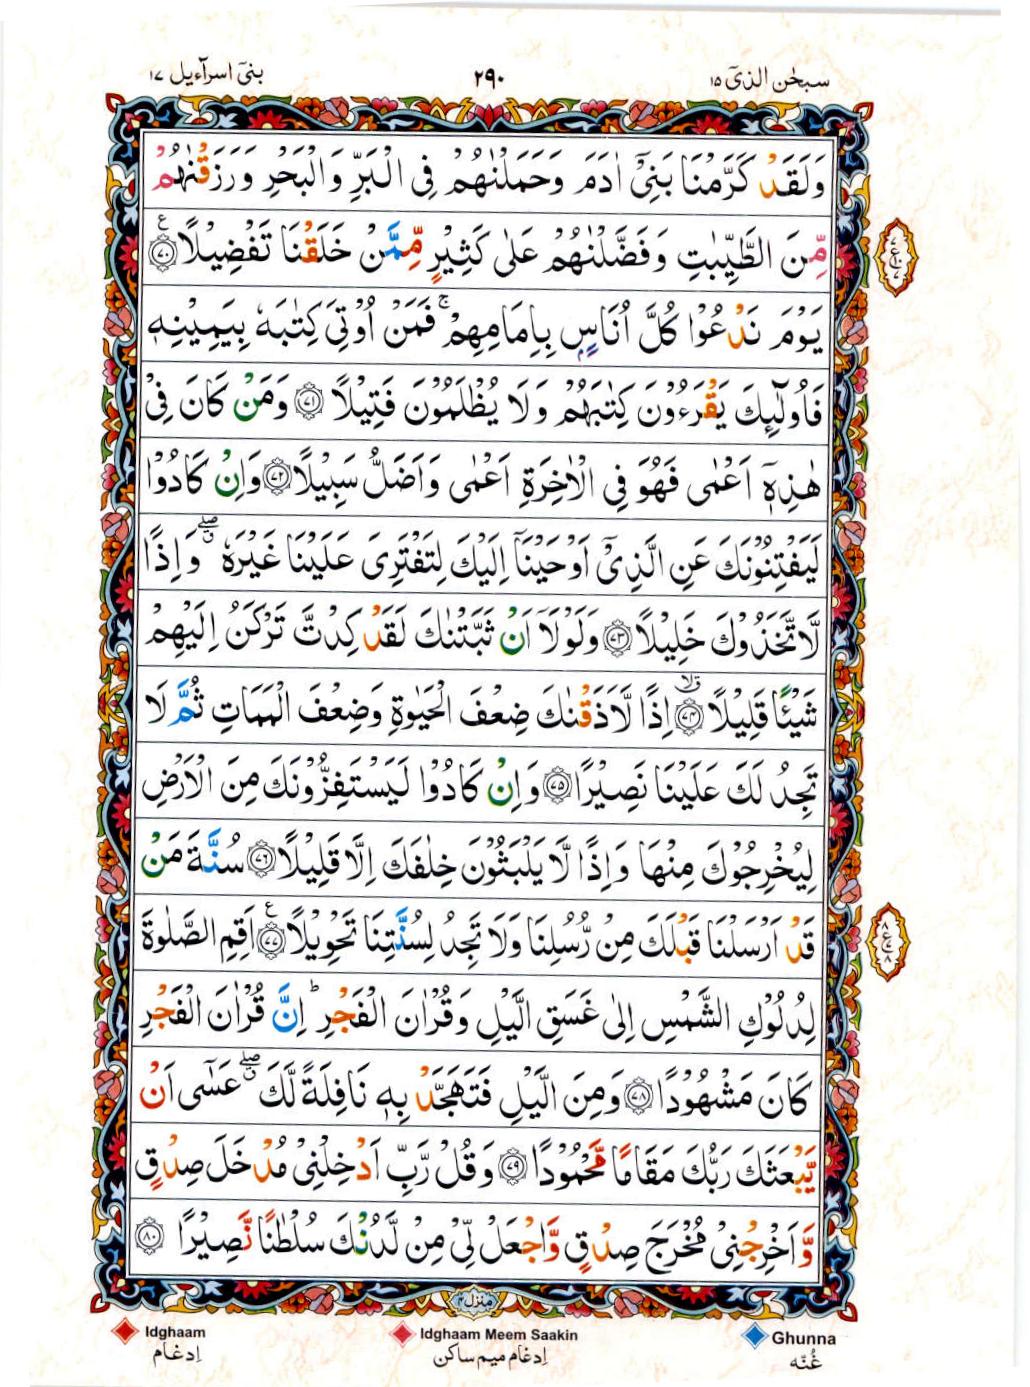 سبحٰن الذیٓ ۱۵ ۲۹۰ بنیٓ اسرآءیل ۱۷
وَلَقَدْ كَرَّمْنَا بَنِیْۤ اٰدَمَ وَحَمَلْنٰهُمْ فِی الْبَرِّ وَالْبَحْرِ وَرَزَقْنٰهُمْ
مِّنَ الطَّیِّبٰتِ وَفَضَّلْنٰهُمْ عَلٰی كَثِیْرٍ مِّمَّنْ خَلَقْنَا تَفْضِیْلًا ﴿۷۰﴾ ع
یَوْمَ نَدْعُوْا كُلَّ اُنَاسٍۭ بِاِمَامِهِمْ ۚ فَمَنْ اُوْتِیَ كِتٰبَهٗ بِیَمِیْنِهٖ
فَاُولٰٓئِكَ یَقْرَءُوْنَ كِتٰبَهُمْ وَلَا یُظْلَمُوْنَ فَتِیْلًا ﴿۷۱﴾ وَمَنْ كَانَ فِیْ
هٰذِهٖۤ اَعْمٰی فَهُوَ فِی الْاٰخِرَةِ اَعْمٰی وَاَضَلُّ سَبِیْلًا ﴿۷۲﴾ وَاِنْ كَادُوْا
لَیَفْتِنُوْنَكَ عَنِ الَّذِیْۤ اَوْحَیْنَاۤ اِلَیْكَ لِتَفْتَرِیَ عَلَیْنَا غَیْرَهٗ ۖۗ وَاِذًا
لَّاتَّخَذُوْكَ خَلِیْلًا ﴿۷۳﴾ وَلَوْلَاۤ اَنْ ثَبَّتْنٰكَ لَقَدْ كِدْتَّ تَرْكَنُ اِلَیْهِمْ
شَیْئًا قَلِیْلًا ﴿۷۴﴾ ۙۗ اِذًا لَّاَذَقْنٰكَ ضِعْفَ الْحَیٰوةِ وَضِعْفَ الْمَمَاتِ ثُمَّ لَا
تَجِدُ لَكَ عَلَیْنَا نَصِیْرًا ﴿۷۵﴾ وَاِنْ كَادُوْا لَیَسْتَفِزُّوْنَكَ مِنَ الْاَرْضِ
لِیُخْرِجُوْكَ مِنْهَا وَاِذًا لَّا یَلْبَثُوْنَ خِلٰفَكَ اِلَّا قَلِیْلًا ﴿۷۶﴾ سُنَّةَ مَنْ
قَدْ اَرْسَلْنَا قَبْلَكَ مِنْ رُّسُلِنَا وَلَا تَجِدُ لِسُنَّتِنَا تَحْوِیْلًا ﴿۷۷﴾ ع اَقِمِ الصَّلٰوةَ
لِدُلُوْكِ الشَّمْسِ اِلٰی غَسَقِ الَّیْلِ وَقُرْاٰنَ الْفَجْرِ ؕ اِنَّ قُرْاٰنَ الْفَجْرِ
كَانَ مَشْهُوْدًا ﴿۷۸﴾ وَمِنَ الَّیْلِ فَتَهَجَّدْ بِهٖ نَافِلَةً لَّكَ ۖۗ عَسٰۤی اَنْ
یَّبْعَثَكَ رَبُّكَ مَقَامًا مَّحْمُوْدًا ﴿۷۹﴾ وَقُلْ رَّبِّ اَدْخِلْنِیْ مُدْخَلَ صِدْقٍ
وَّاَخْرِجْنِیْ مُخْرَجَ صِدْقٍ وَّاجْعَلْ لِّیْ مِنْ لَّدُنْكَ سُلْطٰنًا نَّصِیْرًا ﴿۸۰﴾
منزل ۴
Idghaam Idghaam Meem Saakin Ghunna
اِدغام اِدغام میم ساکن غُنّه